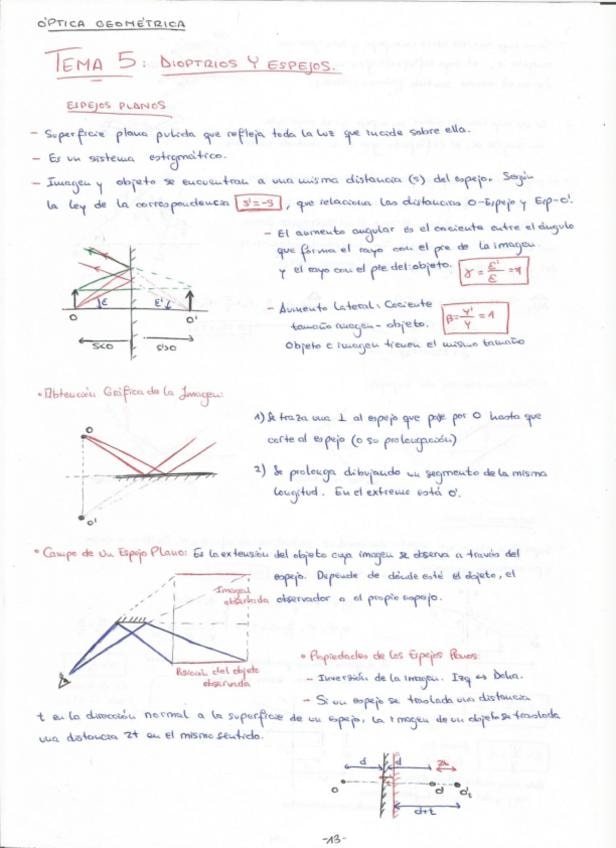 ÓPTICA GEOMÉTRICA
TEMA 5: DIOPTRIOS Y ESPEJOS.
ESPEJOS PLANOS
- Superficie plana pulida que refleja toda la luz que incide sobre ella.
- Es un sistema estigmático.
- Imagen y objeto se encuentran a una misma distancia (s) del espejo. Según
la ley de la correspondencia s'=-s, que relaciona las distancias O-Espejo y Esp-O'.
- El aumento angular es el cociente entre el ángulo
que forma el rayo con el pie de la imagen
y el rayo con el pie del objeto. γ = ε'/ε = -1
- Aumento lateral: Cociente
tamaño imagen - objeto. β = y'/y = 1
Objeto e imagen tienen el mismo tamaño
O ε ε' O'
s<0 s'>0
• Obtención Gráfica de la Imagen:
1) Se traza una ⊥ al espejo que pase por O hasta que
corte al espejo (o su prolongación)
2) Se prolonga dibujando un segmento de la misma
longitud. En el extremo está O'.
O
O'
• Campo de un Espejo Plano: Es la extensión del objeto cuya imagen se observa a través del
espejo. Depende de dónde esté el objeto, el
observador o el propio espejo.
Imagen
observada
Porción del objeto
observada
• Propiedades de los Espejos Planos:
- Inversión de la Imagen. Izq ↔ Dcha.
- Si un espejo se traslada una distancia
t en la dirección normal a la superficie de un espejo, la imagen de un objeto se traslada
una distancia 2t en el mismo sentido.
d d 2t
O t O' O't
d+t
-13-